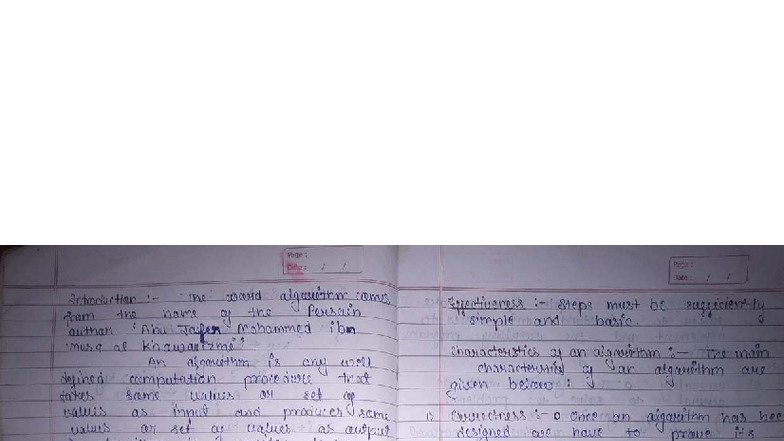 Page :
Date : / /
Introduction :- The word algorithm comes
from the name of the Persain
author 'Abu Jafer Mohammed ibn
musa al Khawarizmi'.
An algorithm is any well
defined computation procedure that
takes some values or set of
values as input and produces some
values or set of values as output
Page :
Date : / /
Effectiveness :- Steps must be sufficiently
simple and basic
Characteristics of an algorithm :- The main
characteristics of an algorithm are
given below :
Correctness :- Once an algorithm has bee
designed we have to prove its